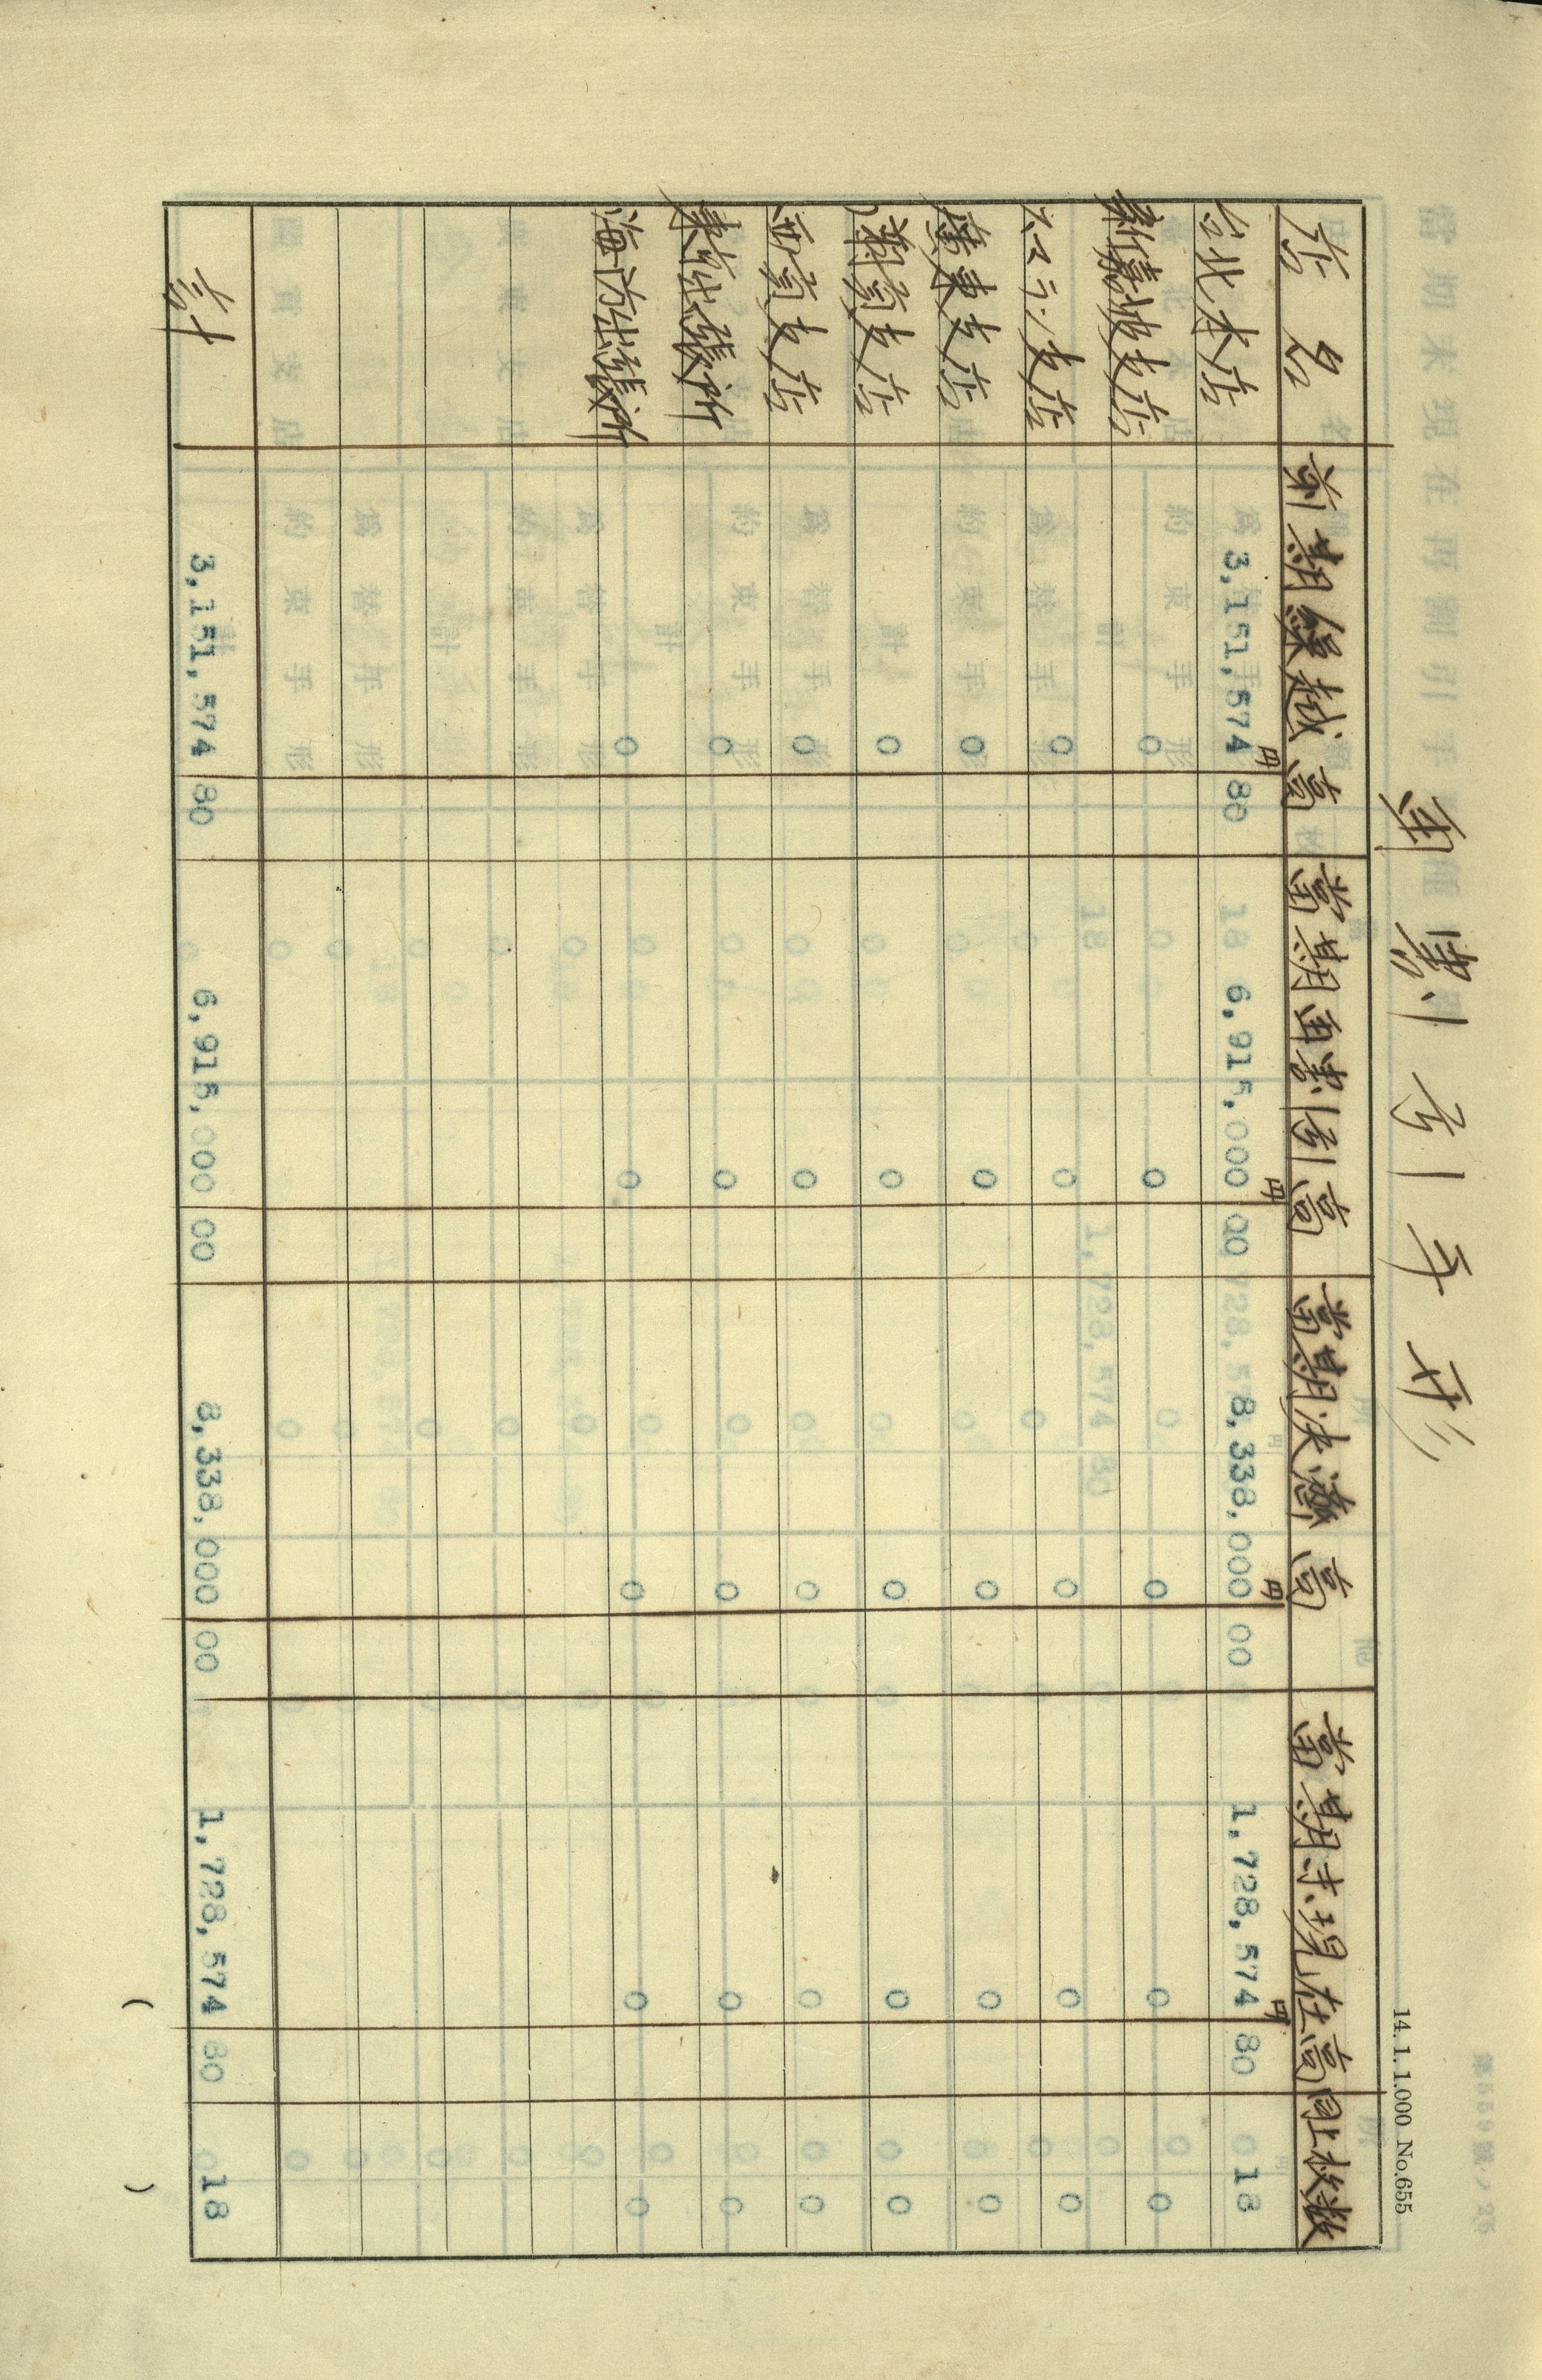 再割引手形
14. 1. 1.000 No.655
店名 前期繰越高 当期再割引高 当期決済高 当期末現在高 同上枚数
台北本店 3,151,574円80 6,915,000円00 8,338,000円00 1,728,574円80 18
新嘉坡支店 0 0 0 0 0
スマラン支店 0 0 0 0 0
廣東支店 0 0 0 0 0
支店 0 0 0 0 0
西貢支店 0 0 0 0 0
出張所 0 0 0 0 0
海防出張所 0 0 0 0 0
計 3,151,574 80 6,915,000 00 8,338,000 00 1,728,574 80 18
( )